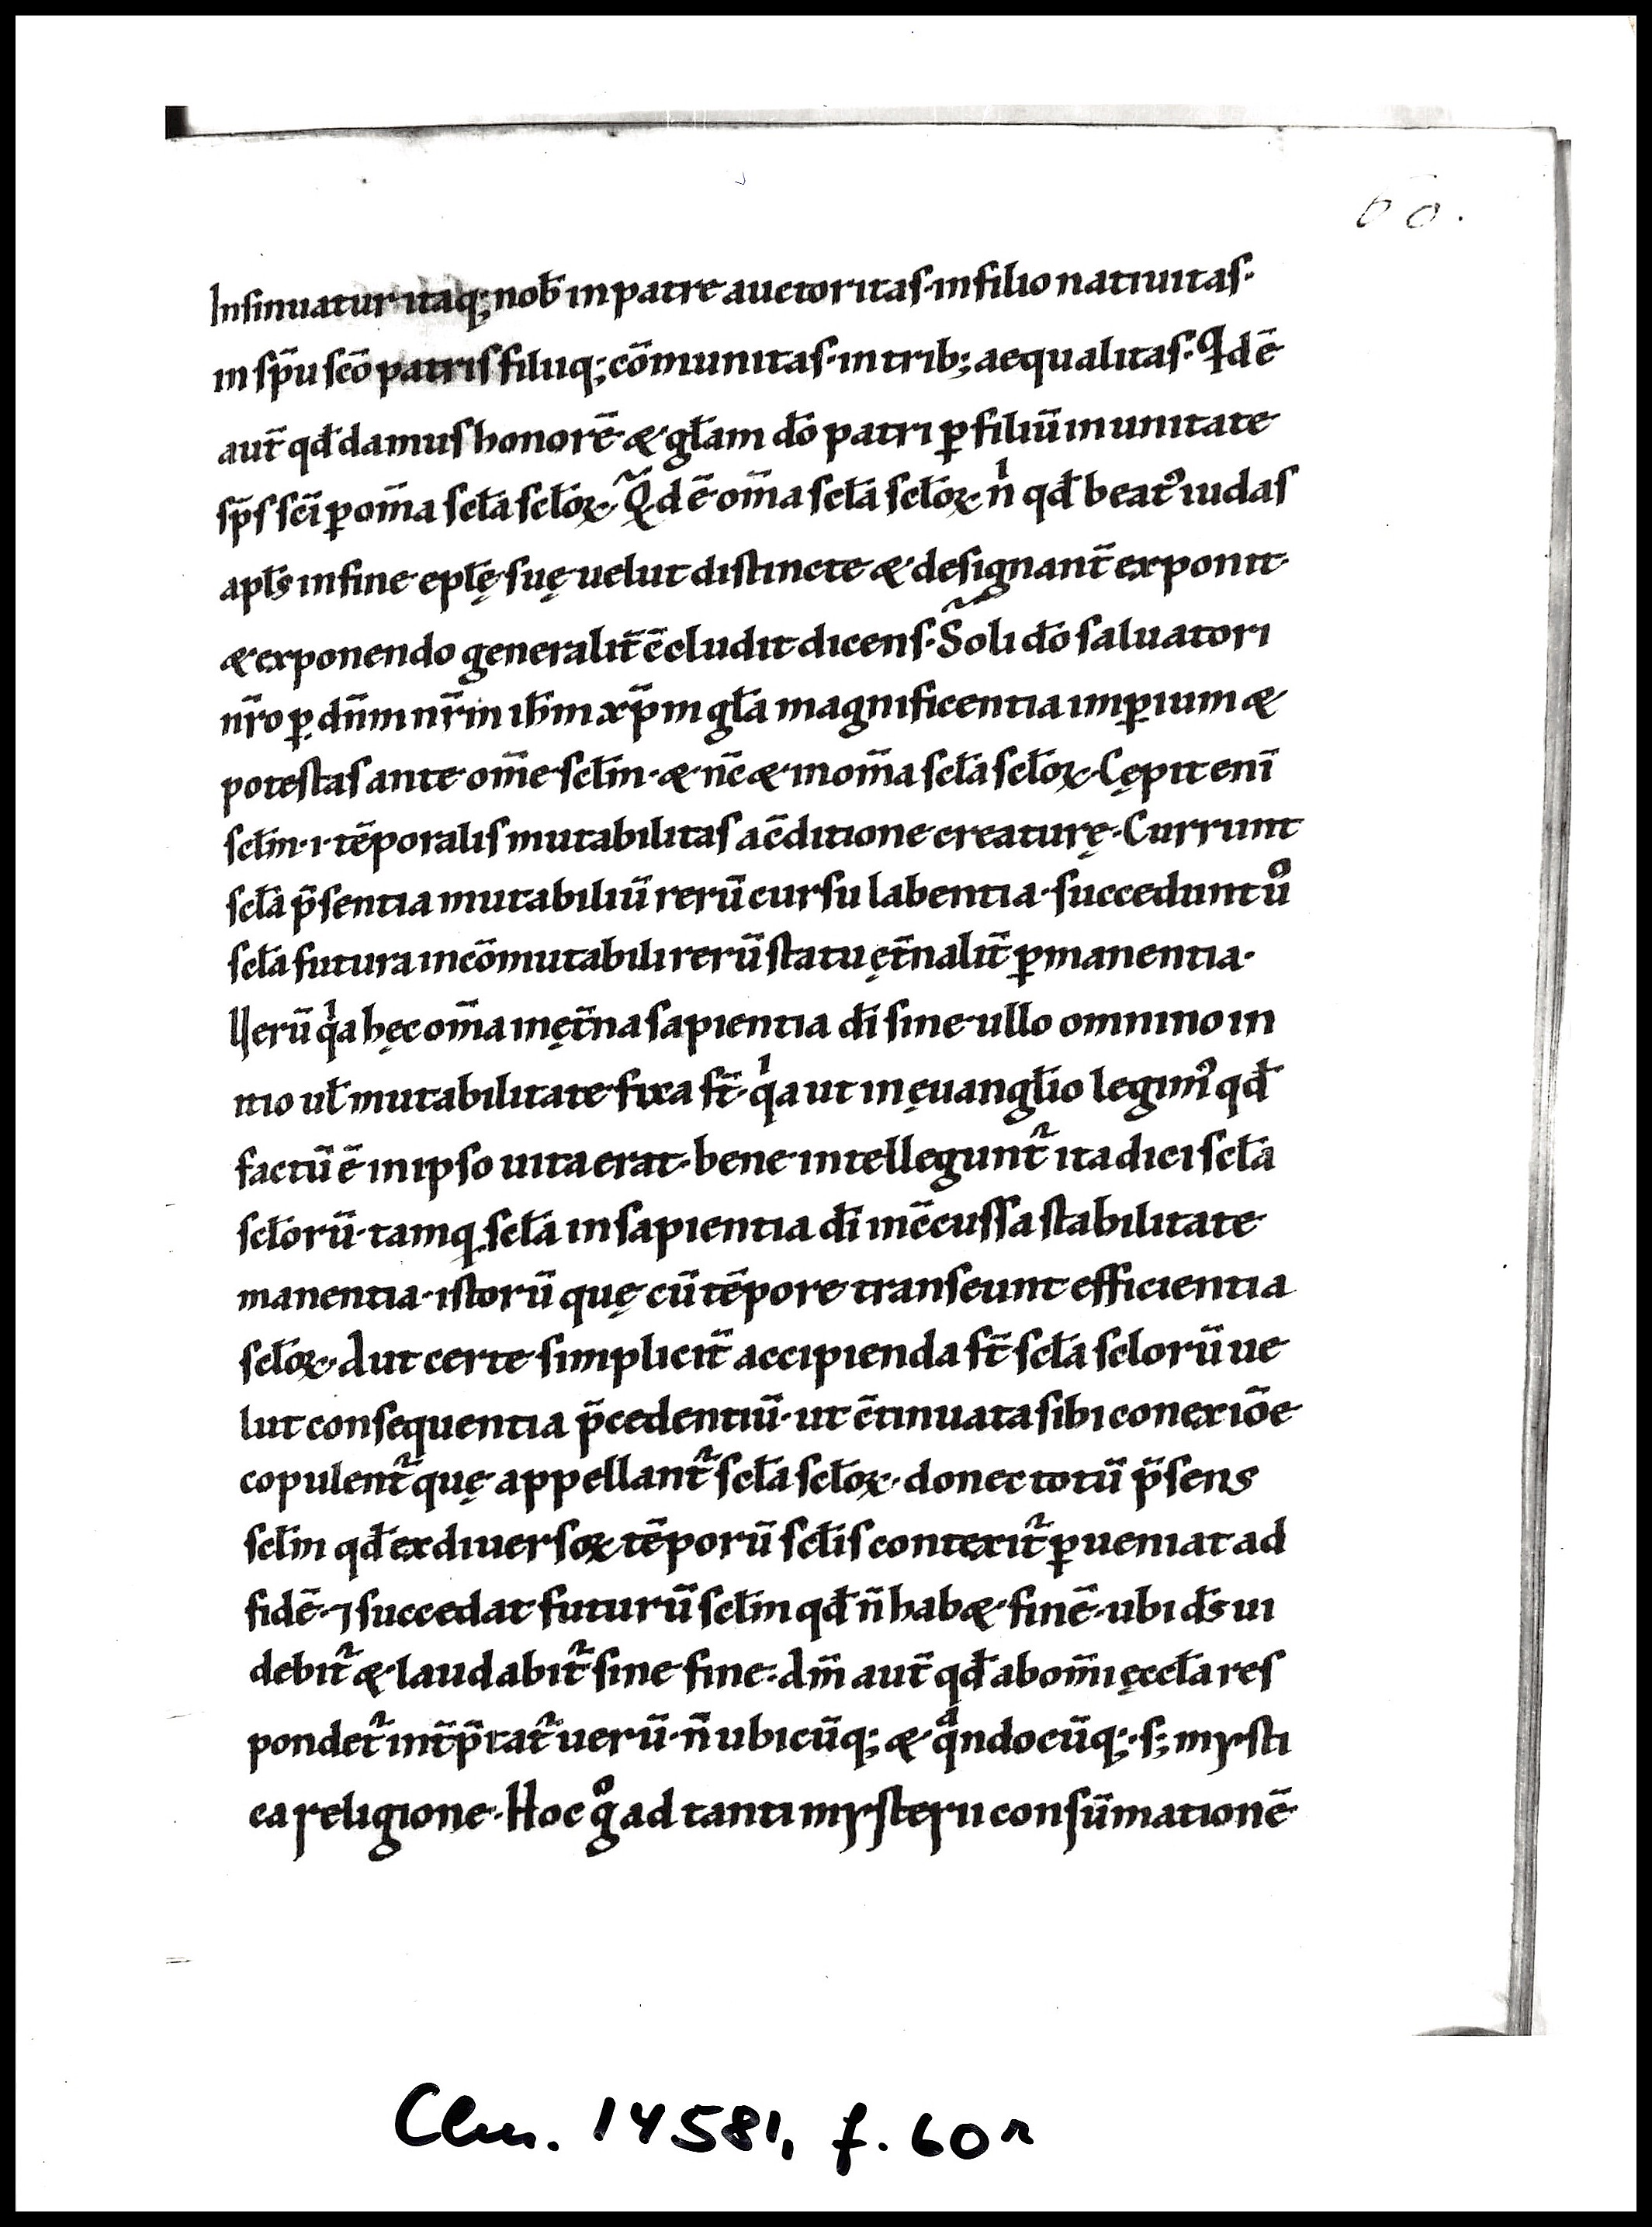 60.
Insinuatur itaq; nob̄ in patre auctoritas· in filio natiuitas·
in sp̄u scō patris filiiq; cōmunitas· in trib; aequalitas· Qd ē
aut̄ qđ damus honorē & głam dō patri ꝑ filiū in unitate
sp̄s scī ꝑ om̄a scła scłoꝝ· Qd ē om̄a scła scłoꝝ nͥ qđ beatꝰ iudas
apłs in fine epłę suę uelut distincte & designant̄ exponit·
& exponendo generalit̄ c̄cludit dicens· Soli dō saluatori
nr̄o ꝑ dn̄m nr̄m ih̄m xp̄m gła magnificentia imꝑium &
potestas ante om̄e scłm· & nc̄ & in om̄a scła scłoꝝ· Cępit eni̅
scłm· i· tēporalis mutabilitas a c̄ditione creaturę· Currunt
scła p̄sentia mutabiliū rerū cursu labentia· succedunt uͦ
scła futura incōmutabili rerū statu ęt̄nalit̄ ꝑmanentia·
Uerū qͥa hęc om̄a in ęt̄na sapientia dī sine ullo omnino in
itio uł mutabilitate fixa st̄· qͥa ut in ęuangłio legimꝰ qđ
factū ē in ipso uita erat· bene intellegunt᷑ ita dici scła
scłorū· tamq scła in sapientia dī inc̄cussa stabilitate
manentia· istorū quę cū tēpore transeunt efficientia
scłoꝝ· Aut certe simplicit̄ accipienda st̄ scła sclorū ue
lut consequentia p̄cedentiū· ut c̄tinuata sibi conexiōe
copulent᷑ quę appellant᷑ scła scłoꝝ· donec totū p̄sens
scłm qđ ex diuersoꝝ tēporū scłis contexit᷑ ꝑueniat ad
fidē· ⁊ succedat futurū scłm qđ n̄ hab& finē· ubi ds̄ ui
debit᷑ & laudabit᷑ sine fine· Am̄ aut̄ qđ ab om̄i ęccła res
pondet᷑ int̄p̄tat᷑ uerū· n̄ ubicūq; & qͣndocūq;· s; mysti
ca religione· Hoc gͦ ad tanti mysterii consūmationē
Clm. 14581, f. 60r